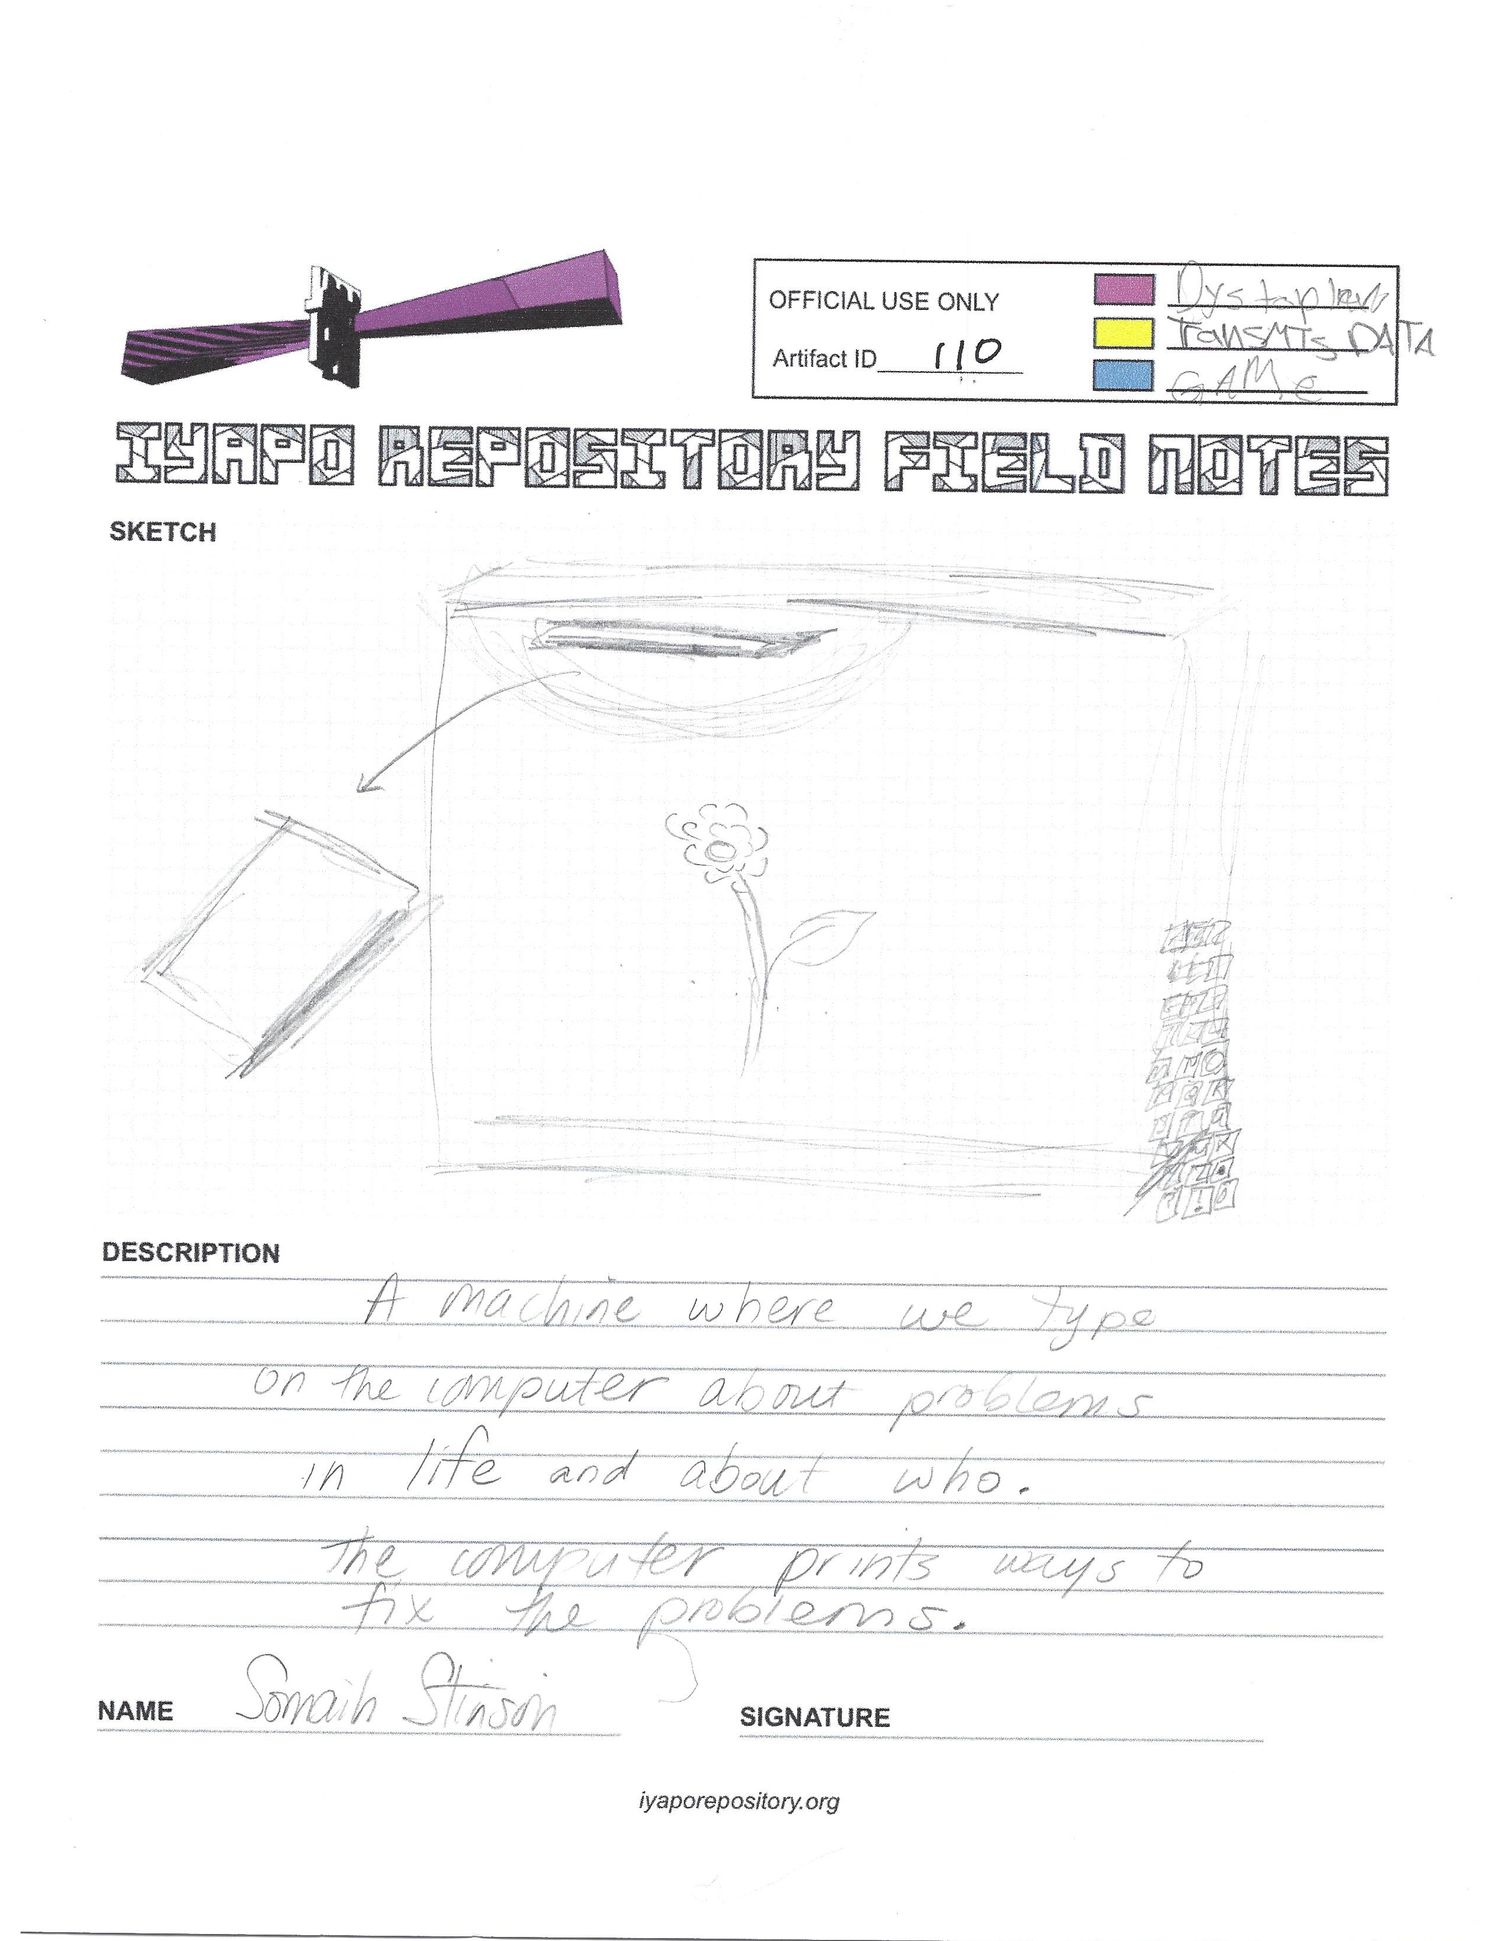 OFFICIAL USE ONLY
Artifact ID 110
Dystopian
TransMTs DATA
GAMe
IYAPO REPOSITORY FIELD NOTES
SKETCH
DESCRIPTION
A machine where we type
on the computer about problems
in life and about who.
The computer prints ways to
fix the problems.
NAME Somaih Stinson
SIGNATURE
iyaporepository.org